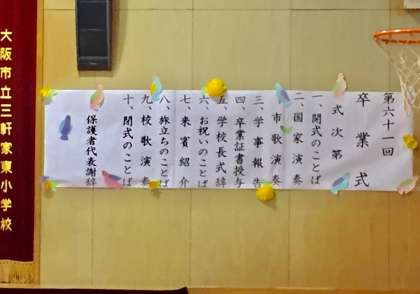 第六十一回
卒業式
式次第
一、開式のことば
二、国家演奏
市歌演奏
三、学事報告
四、卒業証書授与
五、学校長式辞
六、お祝いのことば
七、来賓紹介
八、旅立ちのことば
九、校歌演奏
十、閉式のことば
保護者代表謝辞
大阪市立三軒家東小学校